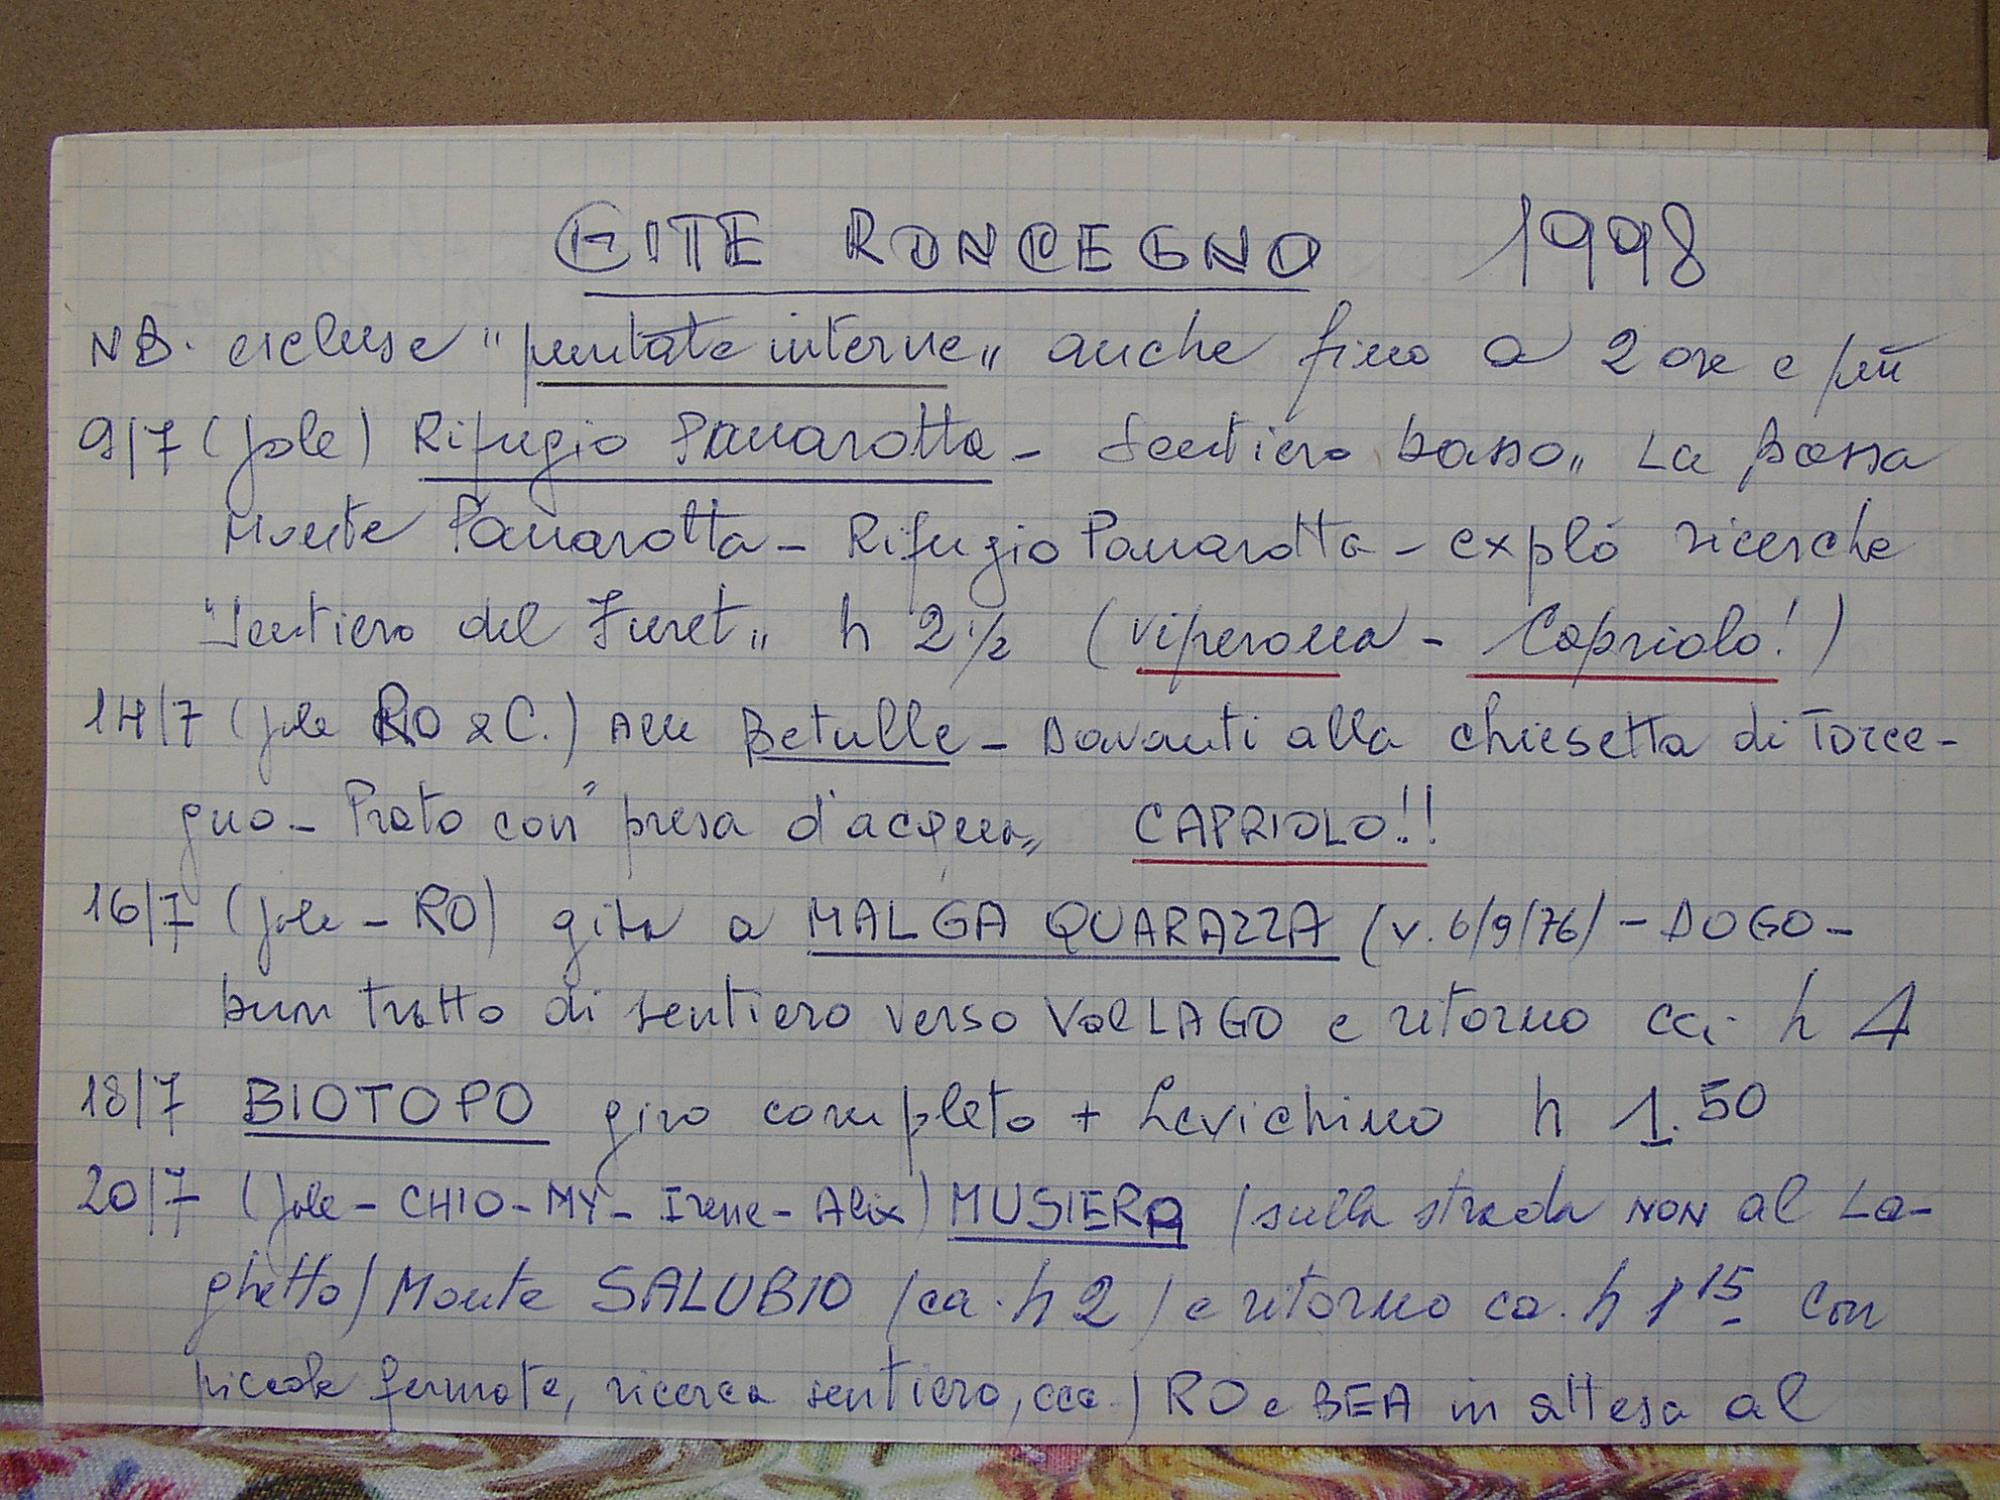 GITE RONCEGNO 1998
NB. escluse "puntate interne" anche fino a 2 ore e più
9/7 (Jole) Rifugio Panarotta - Sentiero basso" La Bassa
Monte Panarotta - Rifugio Panarotta - explò ricerche
"Sentiero del Furet" h 2 1/2 (viperona - Capriolo!)
14/7 (Jole RO & C.) Alle Betulle - Davanti alla chiesetta di Torce-
gno - Prato con "presa d'acqua" CAPRIOLO!!
16/7 (Jole - RO) gita a MALGA QUARAZZA (v. 6/9/76) - DOGO -
buon tratto di sentiero verso Val LAGO e ritorno h 4
18/7 BIOTOPO giro completo + Levichino h 1.50
20/7 (Jole - CHIO - MY - Irene - Alix) MUSIERA (sulla strada NON al La-
ghetto) Monte SALUBIO (ca. h 2) e ritorno ca. h 1 15 con
piccole fermate, ricerca sentiero, ecc.) RO e BEA in attesa al